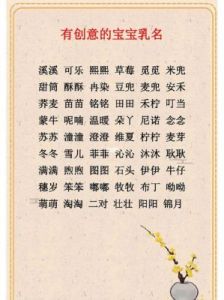 有创意的宝宝乳名
溪溪 可乐 熙熙 草莓 觅觅 米兜
甜筒 酥酥 冉染 豆兜 麦兜 安禾
荞麦 苗苗 铭铭 田田 禾柠 叮当
蒙牛 呢喃 温暖 朵丫 尼诺 念念
苏苏 潼潼 澄澄 维夏 柠柠 麦芽
冬冬 雪儿 菲菲 沁沁 沐沐 耿耿
满满 煦煦 图图 石头 伊伊 牛仔
穗岁 笨笨 嘟嘟 牧牧 布丁 呦呦
萌萌 淘淘 二对 壮壮 阳阳 锦月